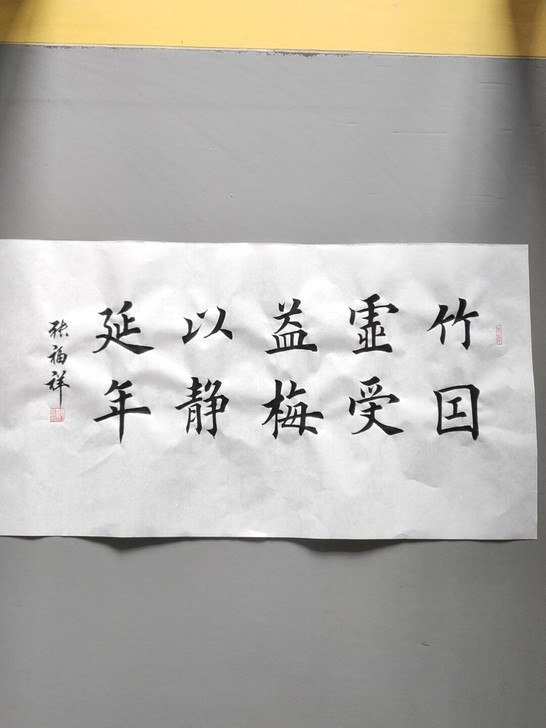 竹囙
虚受
益梅
以静
延年
张福祥